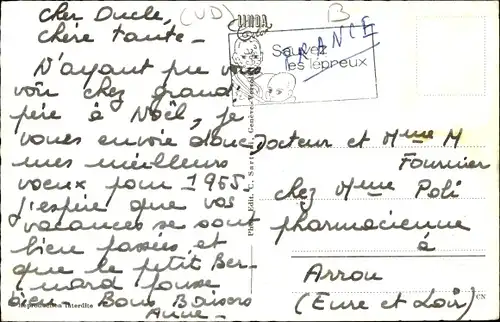 cher Oncle, (UD)
chère tante -
N'ayant pu vous
voir chez grand
père à Noël, je
vous envoie donc
mes meilleurs
voeux pour 1965.
J'espère que vos
vacances se sont
bien passées, et
que le petit Ber-
nard pousse
bien. Bons Baisers
Anne -
Reproduction interdite
LINDA
Color
Photo Edit. C. Sartori, Genève
B
FRANCE
Sauvez
les lépreux
Docteur et Mme M
Fournier
chez Mme Poli
pharmacienne
à
Arrou
(Eure et Loir)
CN